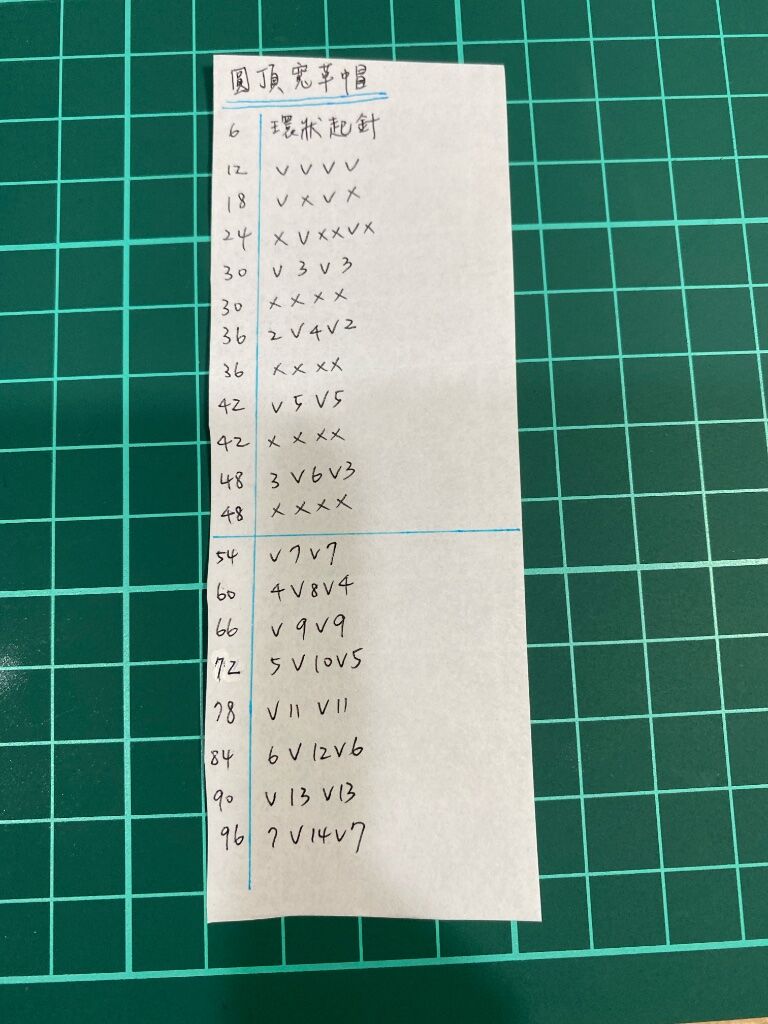 圓頂寬草帽
6 環狀起針
12 V V V V
18 V X V X
24 X V X X V X
30 V 3 V 3
30 X X X X
36 2 V 4 V 2
36 X X X X
42 V 5 V 5
42 X X X X
48 3 V 6 V 3
48 X X X X
54 V 7 V 7
60 4 V 8 V 4
66 V 9 V 9
72 5 V 10 V 5
78 V 11 V 11
84 6 V 12 V 6
90 V 13 V 13
96 7 V 14 V 7